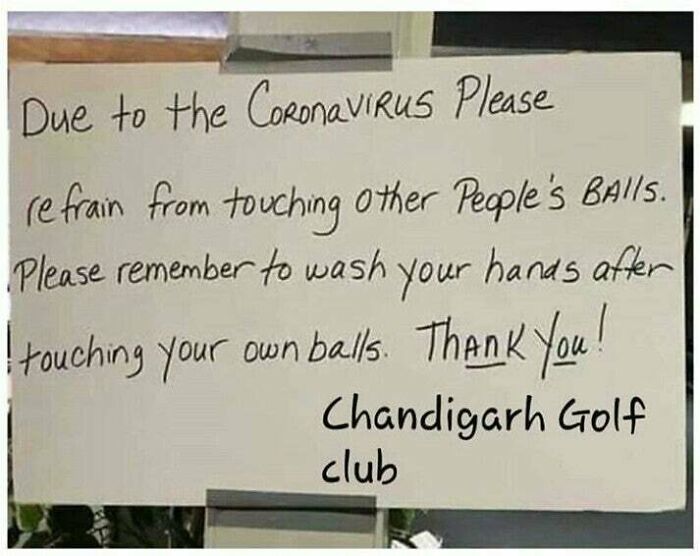 Due to the CORONAVIRUS Please
refrain from touching other People's BAlls.
Please remember to wash your hands after
touching your own balls. THANK You!
Chandigarh Golf
club